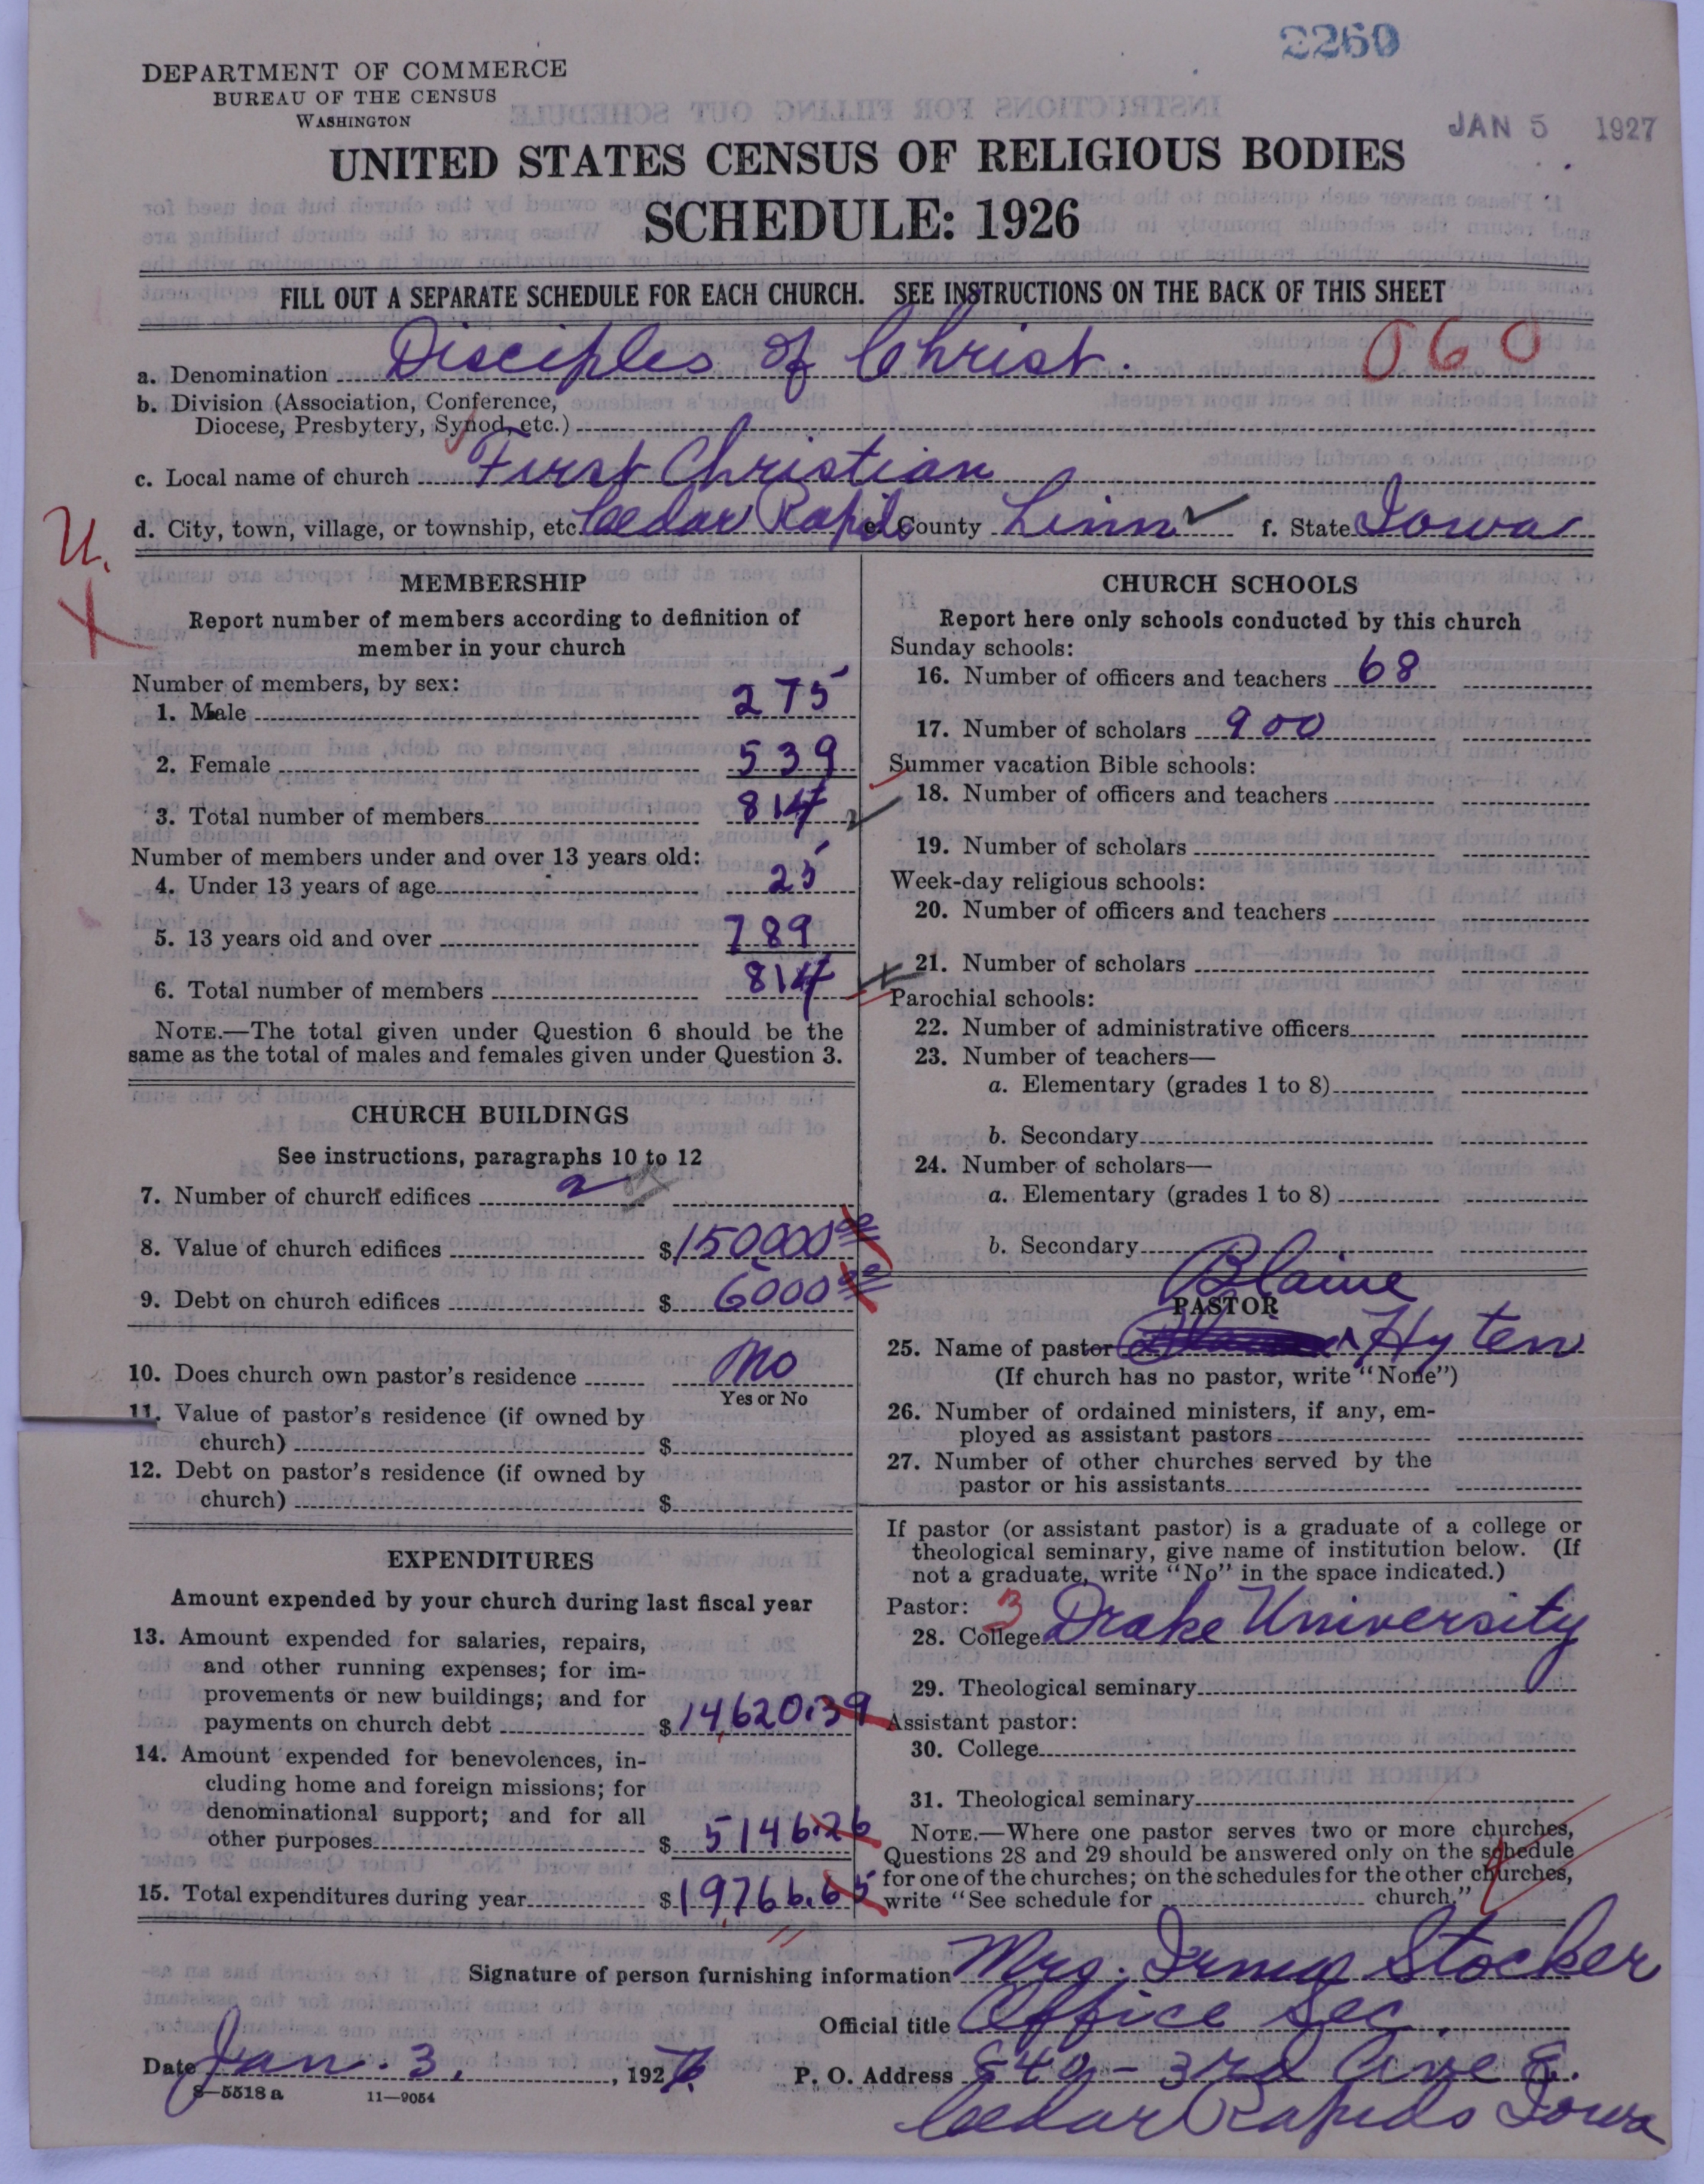 2260
DEPARTMENT OF COMMERCE
BUREAU OF THE CENSUS
WASHINGTON
JAN 5 1927
UNITED STATES CENSUS OF RELIGIOUS BODIES
SCHEDULE: 1926
FILL OUT A SEPARATE SCHEDULE FOR EACH CHURCH. SEE INSTRUCTIONS ON THE BACK OF THIS SHEET
a. Denomination Disciples of Christ. 060
b. Division (Association, Conference,
Diocese, Presbytery, Synod, etc.)
c. Local name of church First Christian
d. City, town, village, or township, etc. Cedar Rapids e. County Linn f. State Iowa
U.
X
MEMBERSHIP
Report number of members according to definition of
member in your church
Number of members, by sex:
1. Male 275
2. Female 539
3. Total number of members 814
Number of members under and over 13 years old:
4. Under 13 years of age 25
5. 13 years old and over 789
6. Total number of members 814
NOTE.—The total given under Question 6 should be the
same as the total of males and females given under Question 3.
CHURCH BUILDINGS
See instructions, paragraphs 10 to 12
7. Number of church edifices 2
8. Value of church edifices $150000.00
9. Debt on church edifices $ 6000.00
10. Does church own pastor's residence No
Yes or No
11. Value of pastor's residence (if owned by
church) $
12. Debt on pastor's residence (if owned by
church) $
EXPENDITURES
Amount expended by your church during last fiscal year
13. Amount expended for salaries, repairs,
and other running expenses; for im-
provements or new buildings; and for
payments on church debt $14,620.39
14. Amount expended for benevolences, in-
cluding home and foreign missions; for
denominational support; and for all
other purposes $ 5146.26
15. Total expenditures during year $19,766.65
CHURCH SCHOOLS
Report here only schools conducted by this church
Sunday schools:
16. Number of officers and teachers 68
17. Number of scholars 900
Summer vacation Bible schools:
18. Number of officers and teachers
19. Number of scholars
Week-day religious schools:
20. Number of officers and teachers
21. Number of scholars
Parochial schools:
22. Number of administrative officers
23. Number of teachers—
a. Elementary (grades 1 to 8)
b. Secondary
24. Number of scholars—
a. Elementary (grades 1 to 8)
b. Secondary
Blaine
PASTOR
25. Name of pastor Hyten
(If church has no pastor, write "None")
26. Number of ordained ministers, if any, em-
ployed as assistant pastors
27. Number of other churches served by the
pastor or his assistants
If pastor (or assistant pastor) is a graduate of a college or
theological seminary, give name of institution below. (If
not a graduate, write "No" in the space indicated.)
Pastor: 3
28. College Drake University
29. Theological seminary
Assistant pastor:
30. College
31. Theological seminary
NOTE.—Where one pastor serves two or more churches,
Questions 28 and 29 should be answered only on the schedule
for one of the churches; on the schedules for the other churches,
write "See schedule for church."
Signature of person furnishing information Mrs. Irma Stocker
Official title Office Sec.
Date Jan. 3, 192 P. O. Address 840 - 3rd Ave E.
8—5518 a 11—9054
Cedar Rapids Iowa